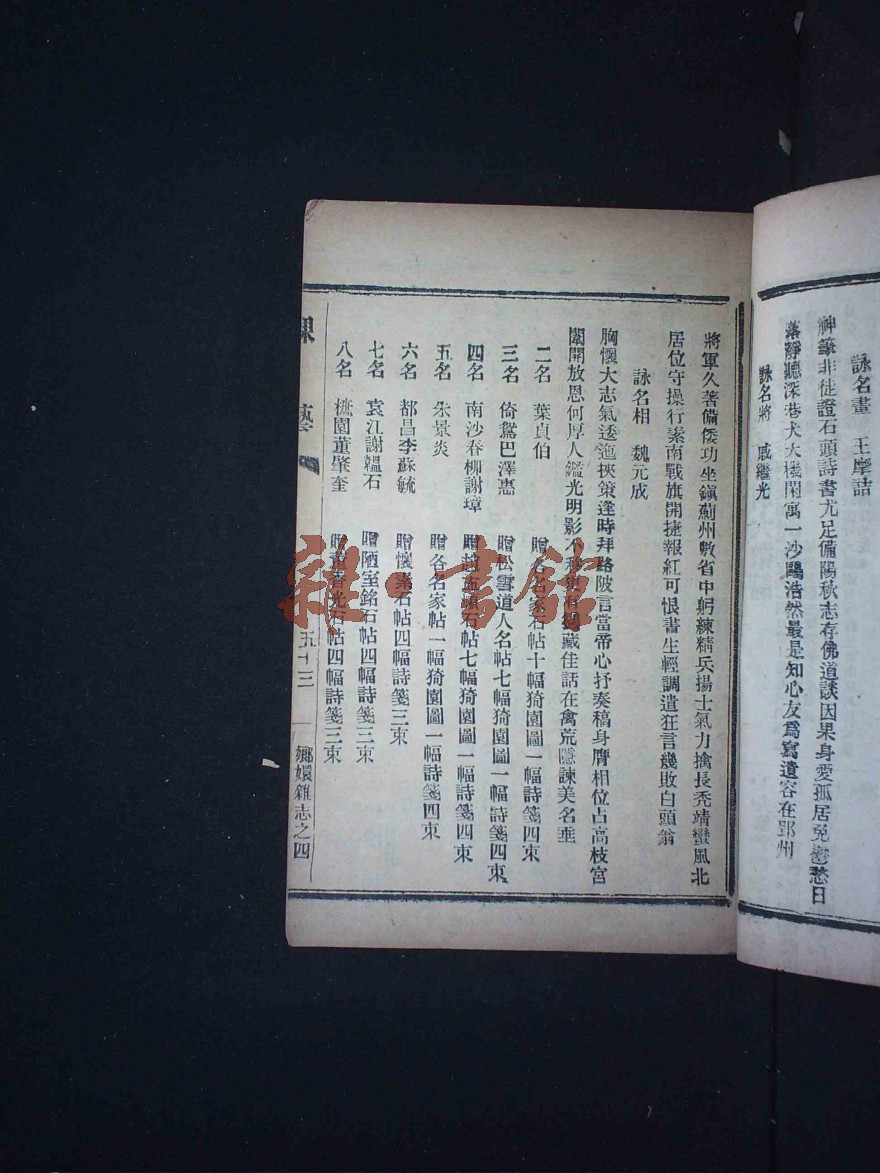 詠名畫　王摩詰
神筆非徒證石頭詩書尤足備陽秋志存佛道談因果身愛孤居免鬱愁日
落靜聽深巷犬大機閑寓一沙鷗浩然最是知心友爲寫遺容在郢州
詠名將　戚繼光
將軍久著備倭功坐鎭薊州數省中躬練精兵揚士氣力擒長禿靖蠻風北
居位守操行素南戰旗開捷報紅可恨書生輕調遣狂言幾敗白頭翁
詠名相　魏元成
胸懷大志氣透迤挾策逢時拜路陂言當帝心抒奏稿身膺相位占高枝宮
闈開放恩何厚人鑑光明影不移藏佳話在禽荒隱諫美名垂
二名　葉貞伯　贈各名家石帖十幅猗園圖一幅詩箋四束
三名　倚鴛巴澤惠　贈松雪道人名帖七幅猗園圖一幅詩箋四束
四名　南沙春柳謝璋　贈石帖七幅猗園圖一幅詩箋四束
五名　朱景炎　贈各名家帖一幅猗園圖一幅詩箋四束
六名　都昌李蘇毓　贈懷素石帖四幅詩箋三束
七名　袁江謝韞石　贈陋室銘石帖四幅詩箋三束
八名　橅園董肇奎　贈董香光石帖四幅詩箋三束
課藝　五十三　嫏嬛雜志之四
雜书館